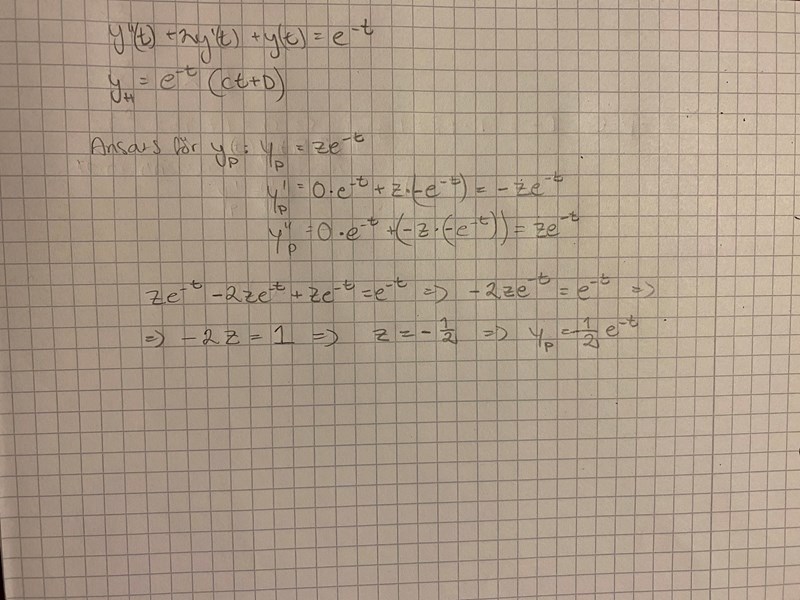 y''(t) + 2y'(t) + y(t) = e^-t
y_H = e^-t (Ct+D)
Ansats för y_p: y_p = ze^-t
y_p' = 0·e^-t + z·(-e^-t) = -ze^-t
y_p'' = 0·e^-t + (-z·(-e^-t)) = ze^-t
ze^-t - 2ze^-t + ze^-t = e^-t => -2ze^-t = e^-t =>
=> -2z = 1 => z = -1/2 => y_p = -1/2 e^-t